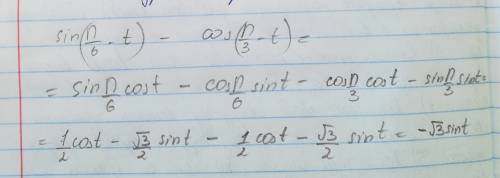 sin(π/6 - t) - cos(π/3 - t) =
= sin π/6 cos t - cos π/6 sin t - cos π/3 cos t - sin π/3 sin t =
= 1/2 cos t - √3/2 sin t - 1/2 cos t - √3/2 sin t = -√3 sin t